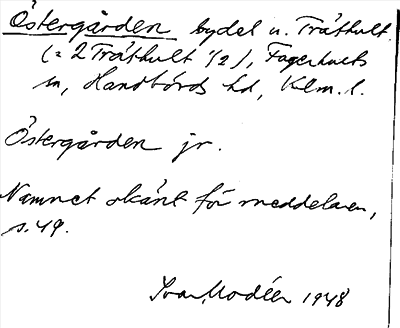 Östergården bydel u. Tråthult
(= 2 Tråthult 1/2), Fagerhults
sn, Handbörds hd, Klm. l.
Östergården jr.
Namnet okänt för meddelaren,
s. 49.
Ivar Modéer 1948